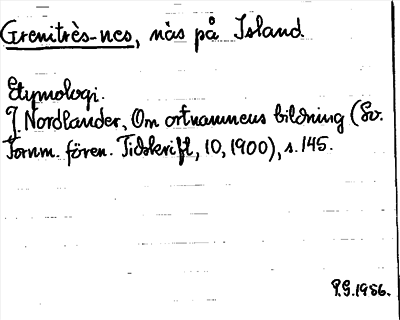 Grenitrès-nes, näs på Island
Etymologi.
J. Nordlander, Om ortnamnens bildning (Sv.
Fornm. fören. Tidskrift, 10, 1900), s. 145.
P.G. 1986.